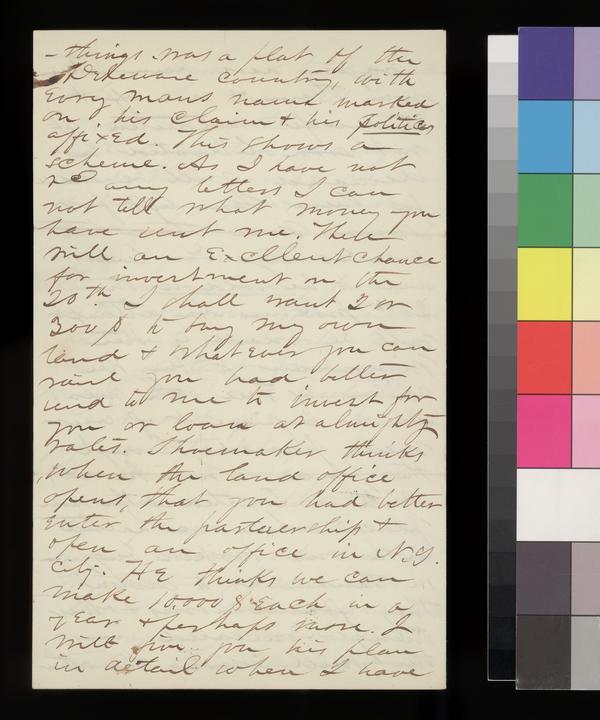 - things was a plat of the
Deleware country, with
Every mans name marked
on his claim & his politics
affixed. This shows a
scheme. As I have not
rec any letters I can
not tell what money you
have sent me. There
will an Excellent chance
for investment on the
20th I shall want 2 or
300$ to buy my own
land & what ever you can
raise you had better
send to me to invest for
you or loan at almighty
rates. Shoemaker thinks
when the land office
opens, that you had better
enter the partnership &
open an office in N.Y.
City. HE thinks we can
make 10,000$ Each in a
year & perhaps more. I
will give you his plan
in detail when I have